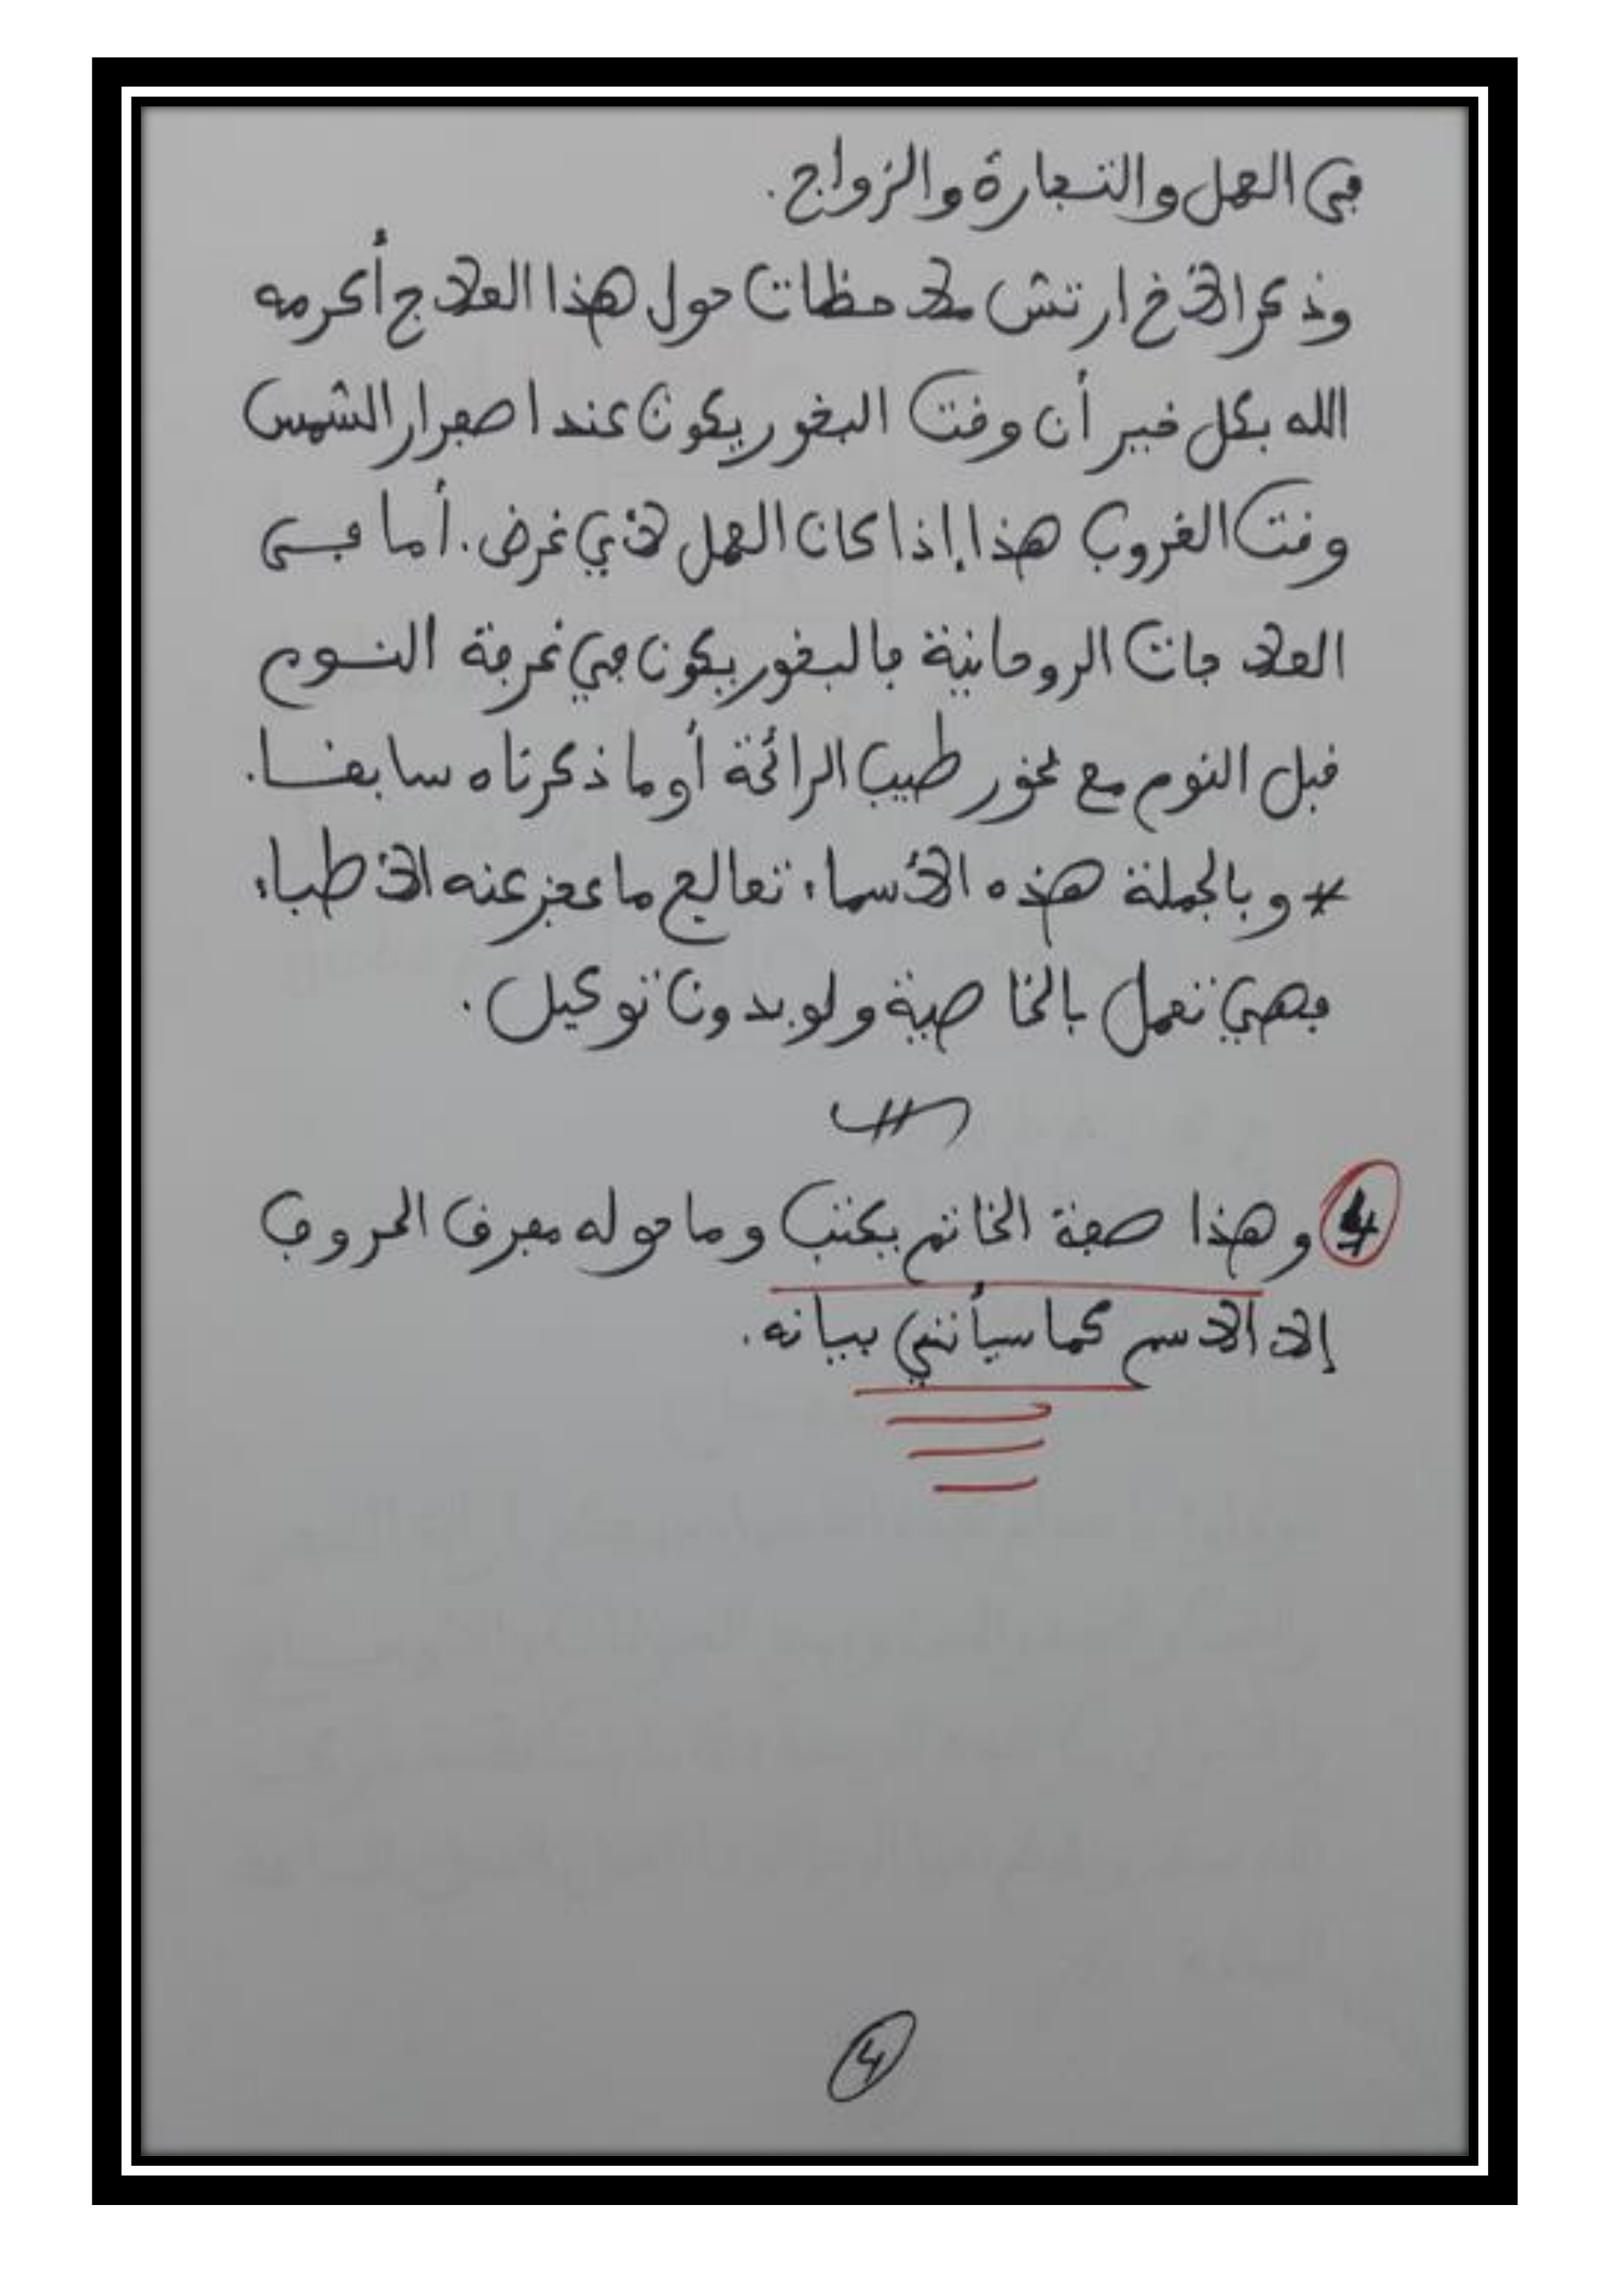 في العمل والتجارة والزواج.
وذكر الأخ ارتش ملاحظات حول هذا العلاج أكرمه
الله بكل خير أن وقت البخور يكون عند اصفرار الشمس
وقت الغروب هذا إذا كان العمل لأي غرض. أما في
العلاجات الروحانية فالبخور يكون في غرفة النوم
قبل النوم مع بخور طيب الرائحة أو ما ذكرناه سابقا.
* وبالجملة هذه الأسماء تعالج ما عجز عنه الأطباء
فهي تعمل بالخاصية ولو بدون توكيل.
4 وهذا صفة الخاتم يكتب وما حوله مفرق الحروف
إلا الاسم كما سيأتي بيانه.
4